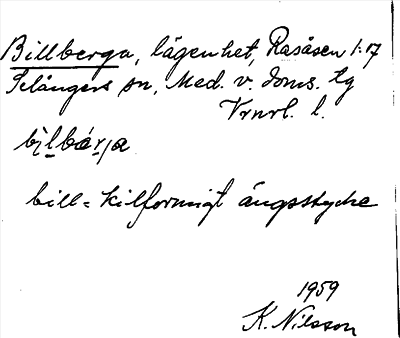 Billberga, lägenhet, Rasåsen 1:17
Selångers sn, Med. v. doms. tg
Vrnrl. l.
bilbárja
bill = kilformigt ängsstycke
1959
K. Nilsson